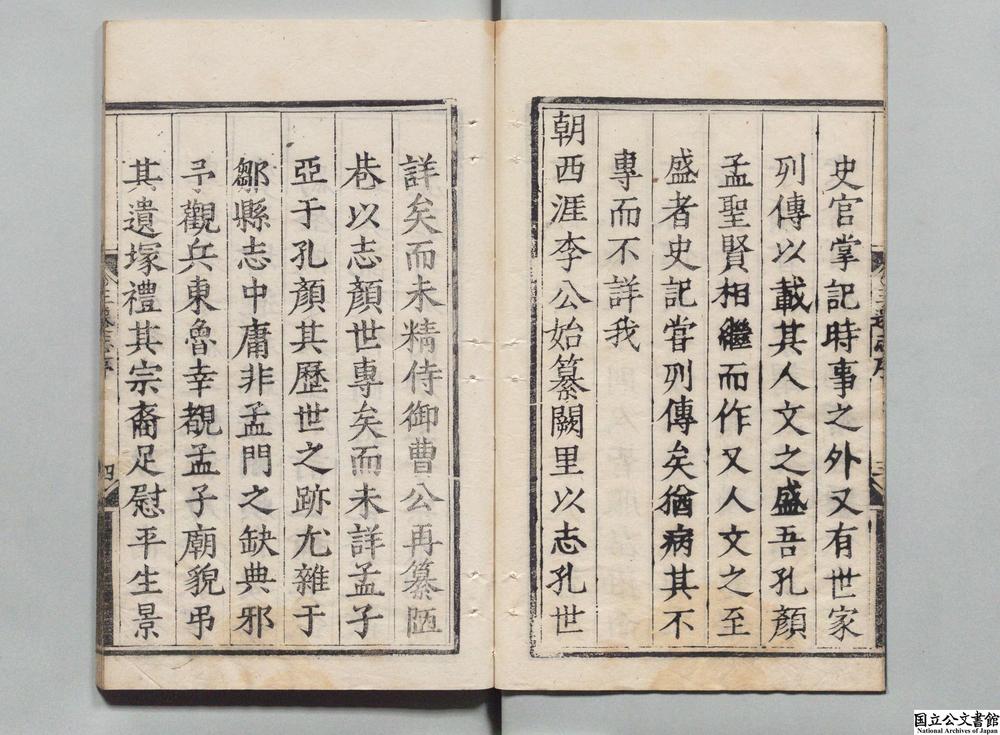 史官掌記時事之外又有世家
列傳以載其人文之盛吾孔顏
孟聖賢相繼而作又人文之至
盛者史記甞列傳矣猶病其不
專而不詳我
朝西涯李公始纂闕里以志孔世
詳矣而未精侍御曹公再纂陋
巷以志顏世專矣而未詳孟子
亞于孔顏其歷世之跡尤雜于
鄒縣志中庸非孟門之缺典邪
予觀兵東魯幸覩孟子廟貌弔
其遺塚禮其宗裔足慰平生景
三
四
国立公文書館
National Archives of Japan